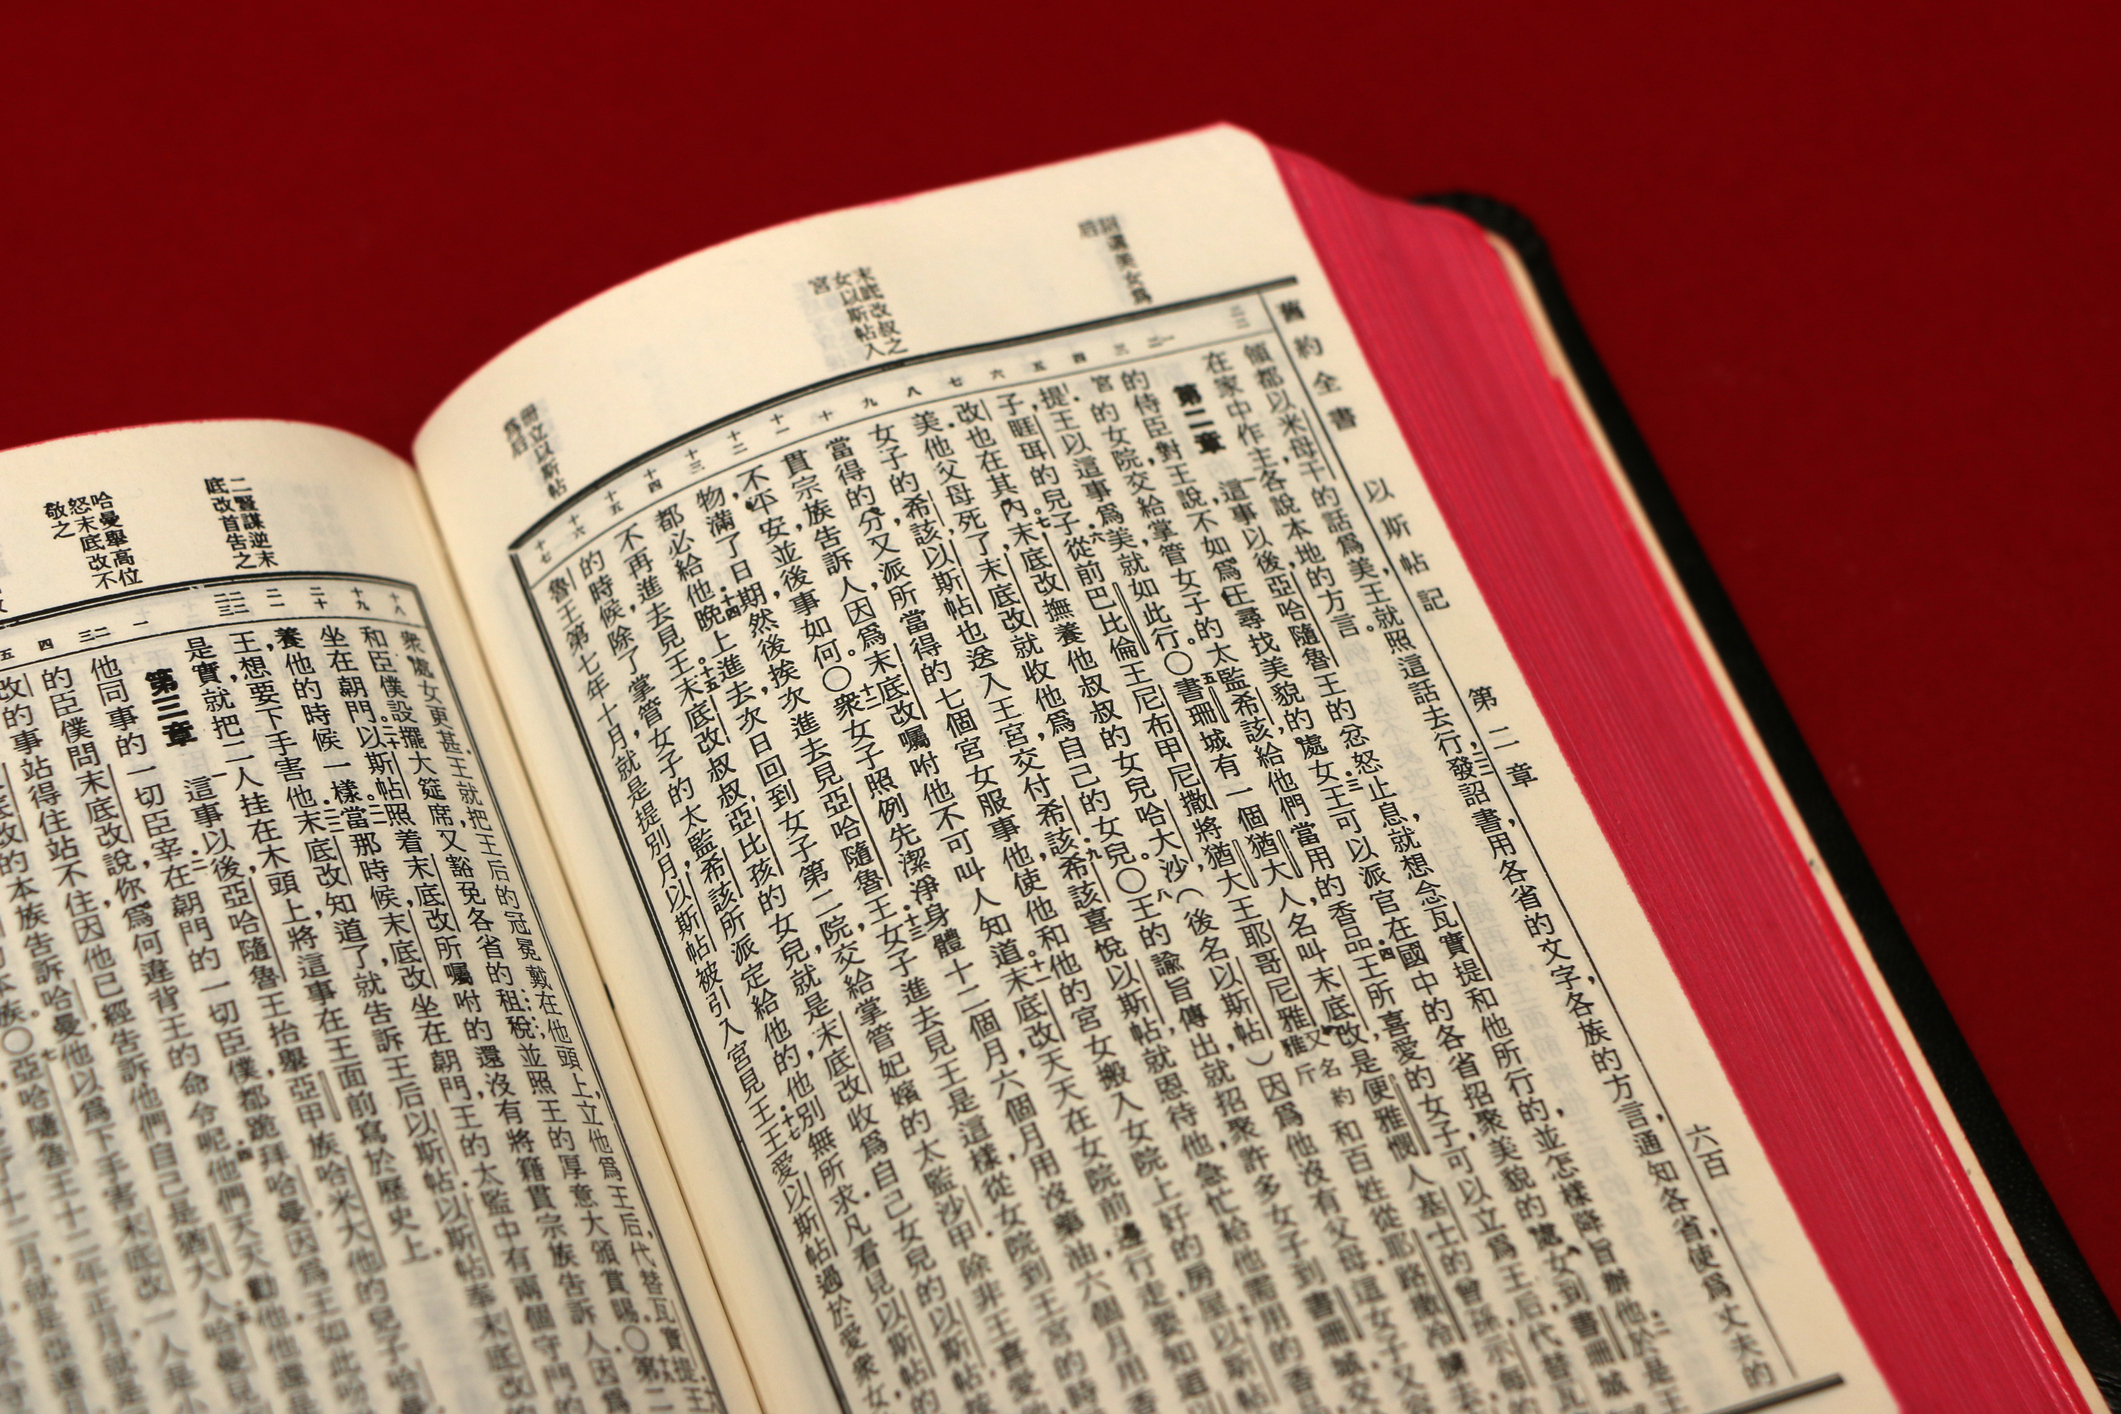 舊約全書 以斯帖記 第二章 六百
詔選美女爲后
末底改叔之女以斯帖入宮
冊立以斯帖爲后
二二 一 二 三 四 五 六 七 八 九 十 十一 十二 十三 十四 十五 十六 十七
領都以米母干的話爲美,王就照這話去行,二二發詔書,用各省的文字,各族的方言,通知各省,使爲丈夫的
在家中作主,各說本地的方言。
第二章 一這事以後,亞哈隨魯王的忿怒止息,就想念瓦實提和他所行的,並怎樣降旨辦他.二於是王
的侍臣對王說,不如爲王尋找美貌的處女.三王可以派官在國中的各省招聚美貌的處女,到書珊城
宮的女院,交給掌管女子的太監希該,給他們當用的香品.四王所喜愛的女子,可以立爲王后,代替瓦
提.王以這事爲美,就如此行。〇五書珊城有一個猶大人名叫末底改,是便雅憫人基士的曾孫,示每的
子,睚珥的兒子.六從前巴比倫王尼布甲尼撒將猶大王耶哥尼雅又名約雅斤和百姓從耶路撒冷擄去
改也在其內.七末底改撫養他叔叔的女兒哈大沙(後名以斯帖)因爲他沒有父母.這女子又容
美.他父母死了,末底改就收他爲自己的女兒。〇八王的諭旨傳出,就招聚許多女子到書珊城,交
女子的希該,以斯帖也送入王宮交付希該.九希該喜悅以斯帖,就恩待他,急忙給他需用的香品
當得的分,又派所當得的七個宮女服事他,使他和他的宮女搬入女院上好的房屋.十以斯帖
貫宗族告訴人,因爲末底改囑咐他不可叫人知道。十一末底改天天在女院前邊行走,要知道
不平安,並後事如何。〇十二衆女子照例先潔淨身體十二個月,六個月用沒藥油,六個月用香
物,滿了日期,然後挨次進去見亞哈隨魯王.十三女子進去見王是這樣,從女院到王宮的時
都必給他.十四晚上進去,次日回到女子第二院,交給掌管妃嬪的太監沙甲.除非王喜愛
不再進去見王。十五末底改叔叔亞比孩的女兒,就是末底改收爲自己女兒的以斯帖,按
的時候,除了掌管女子的太監希該所派定給他的,他別無所求.凡看見以斯帖的
魯王第七年十月就是提別月,以斯帖被引入宮見王.十七王愛以斯帖過於愛衆女
二豎謀逆末底改首告之
哈曼舉高位怒末底改不敬之
十八 十九 二十 二一 二二 二三 一 二 三 四 五
衆處女更甚,王就把王后的冠冕戴在他頭上,立他爲王后,代替瓦實提.十八
和臣僕設擺大筵席,又豁免各省的租稅,並照王的厚意大頒賞賜。〇十九第二
坐在朝門.二十以斯帖照着末底改所囑咐的,還沒有將籍貫宗族告訴人,因爲
養他的時候一樣.二一當那時候,末底改坐在朝門,王的太監中有兩個守門的
王,想要下手害他.二二末底改知道了,就告訴王后以斯帖.以斯帖奉末底改
是實,就把二人挂在木頭上,將這事在王面前寫於歷史上
第三章 一這事以後,亞哈隨魯王抬舉亞甲族哈米大他的兒子哈曼
他同事的一切臣宰.二在朝門的一切臣僕,都跪拜哈曼,因爲王如此吩
的臣僕問末底改說,你爲何違背王的命令呢.四他們天天勸他,他還是
改的事站得住站不住,因他已經告訴他們自己是猶大人.哈曼見
底改的本族告訴哈曼,他以爲下手害末底改一人是小
本族。〇七亞哈隨魯王十二年正月就是
十二月就是亞達月